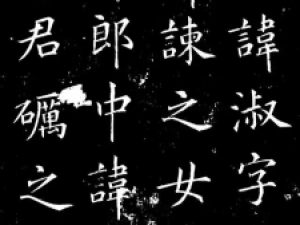 諱淑字
諫之女
郎中諱
君礪之